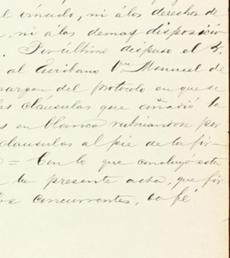 vínculo, ni á los derechos de
ni á las demas disposicio
Por ultimo dispuso el S.
al Escribano Dn Manuel de
margen del protocolo en que se
las clausulas que añadió la
en blanco rubricandose por
clausulas al pie de la fir
= Con lo que concluyó este
la presente acta, que fir
concurrentes, doy fé